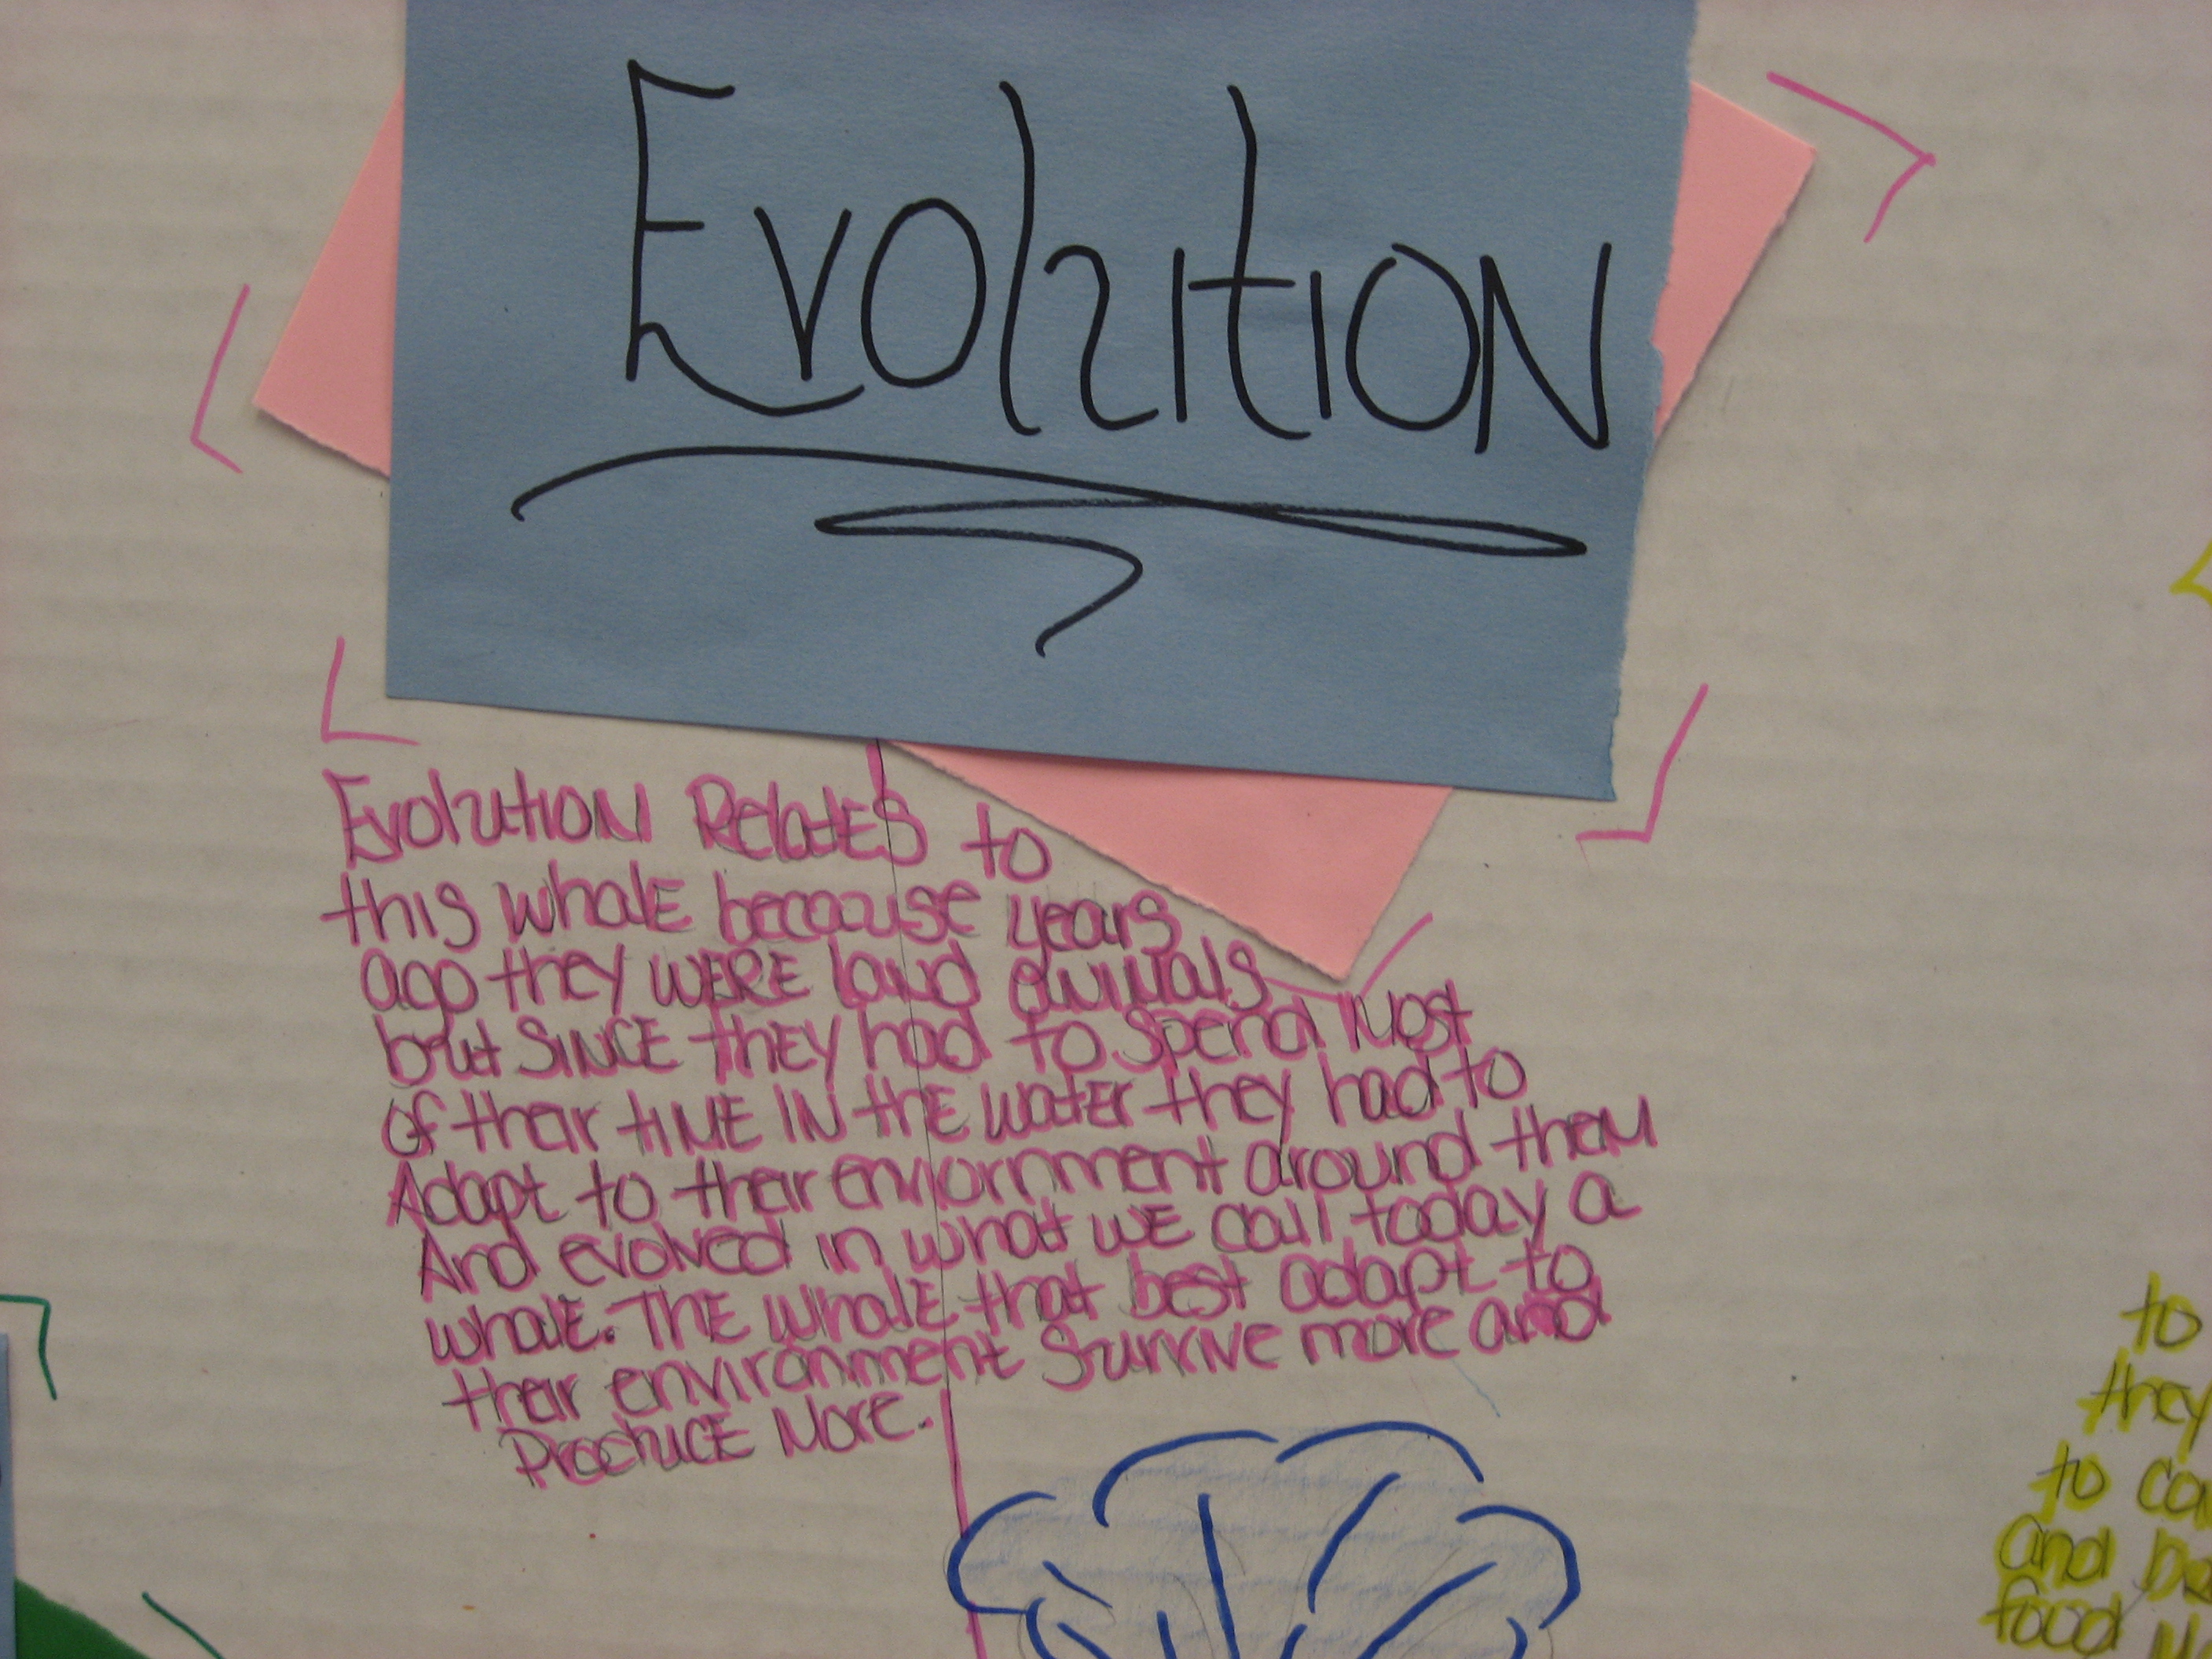 Evolution
Evolution Relates to
this whale because years
ago they were land animals
but since they had to spend most
of their time in the water they had to
Adapt to their enviornment around them
And evolved in what we call today a
whale. The whale that best adapt to
their environment survive more and
Produce More.
to
they
to
and
food